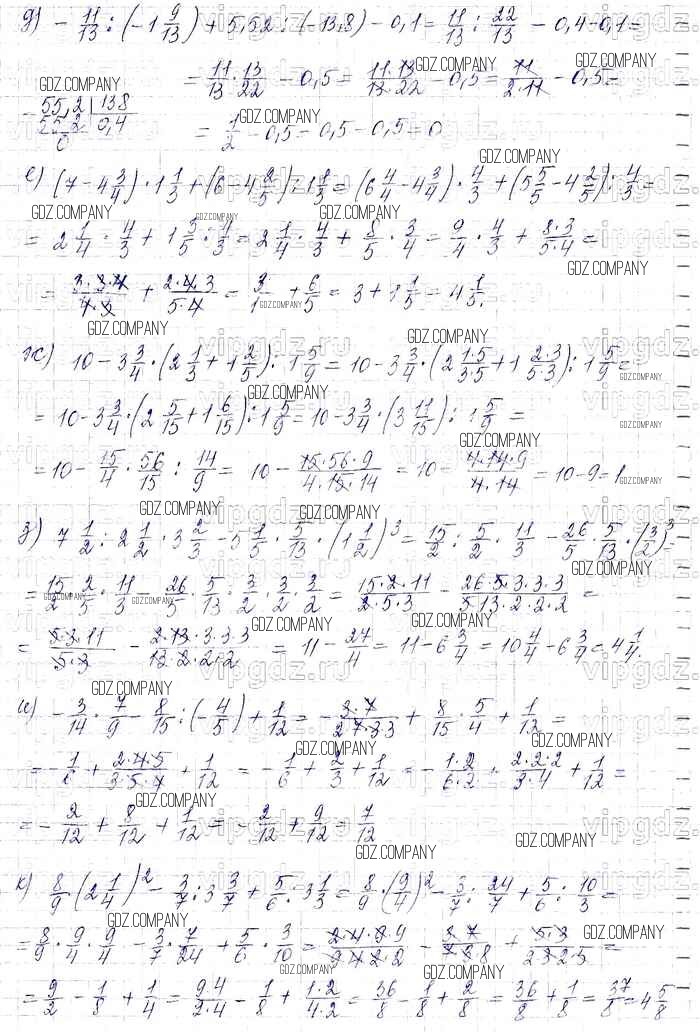 д) - 11/13 : (-1 9/13) + 5,52 : (-13,8) - 0,1 = 11/13 : 22/13 - 0,4 - 0,1 =
= 11·13/13·22 - 0,5 = 11·13/13·22 - 0,5 = 11/2·11 - 0,5 =
55,2 | 138
55 2 | 0,4
0
= 1/2 - 0,5 = 0,5 - 0,5 = 0
е) (7 - 4 3/4) · 1 1/3 + (6 - 4 2/5) : 1 1/3 = (6 4/4 - 4 3/4) · 4/3 + (5 5/5 - 4 2/5) : 4/3 =
= 2 1/4 · 4/3 + 1 3/5 : 4/3 = 2 1/4 · 4/3 + 8/5 · 3/4 = 9/4 · 4/3 + 8·3/5·4 =
= 3·3·4/4·3 + 2·4·3/5·4 = 3/1 + 6/5 = 3 + 1 1/5 = 4 1/5.
ж) 10 - 3 3/4 · (2 1/3 + 1 2/5) : 1 5/9 = 10 - 3 3/4 · (2 1·5/3·5 + 1 2·3/5·3) : 1 5/9 =
= 10 - 3 3/4 · (2 5/15 + 1 6/15) : 1 5/9 = 10 - 3 3/4 · (3 11/15) : 1 5/9 =
= 10 - 15/4 · 56/15 : 14/9 = 10 - 15·56·9/4·15·14 = 10 - 4·14·9/4·14 = 10 - 9 = 1
з) 7 1/2 : 2 1/2 · 3 2/3 - 5 1/5 · 5/13 · (1 1/2)³ = 15/2 : 5/2 · 11/3 - 26/5 · 5/13 · (3/2)³ =
= 15/2 · 2/5 · 11/3 - 26/5 · 5/13 · 3/2 · 3/2 · 3/2 = 15·2·11/2·5·3 - 26·5·3·3·3/5·13·2·2·2 =
= 5·3·11/5·3 - 2·13·3·3·3/13·2·2·2 = 11 - 27/4 = 11 - 6 3/4 = 10 4/4 - 6 3/4 = 4 1/4.
и) - 3/14 · 7/9 - 8/15 : (- 4/5) + 1/12 = - 3·7/2·7·3·3 + 8/15 · 5/4 + 1/12 =
= - 1/6 + 2·4·5/3·5·4 + 1/12 = - 1/6 + 2/3 + 1/12 = - 1·2/6·2 + 2·2·2/3·4 + 1/12 =
= - 2/12 + 8/12 + 1/12 = - 2/12 + 9/12 = 7/12
к) 8/9 · (2 1/4)² - 3/7 : 3 3/7 + 5/6 : 3 1/3 = 8/9 · (9/4)² - 3/7 : 24/7 + 5/6 : 10/3 =
= 8/9 · 9/4 · 9/4 - 3/7 · 7/24 + 5/6 · 3/10 = 2·4·9·9/9·4·2·2 - 3·7/7·3·8 + 5·3/2·3·2·5 =
= 9/2 - 1/8 + 1/4 = 9·4/2·4 - 1/8 + 1·2/4·2 = 36/8 - 1/8 + 2/8 = 36/8 + 1/8 = 37/8 = 4 5/8